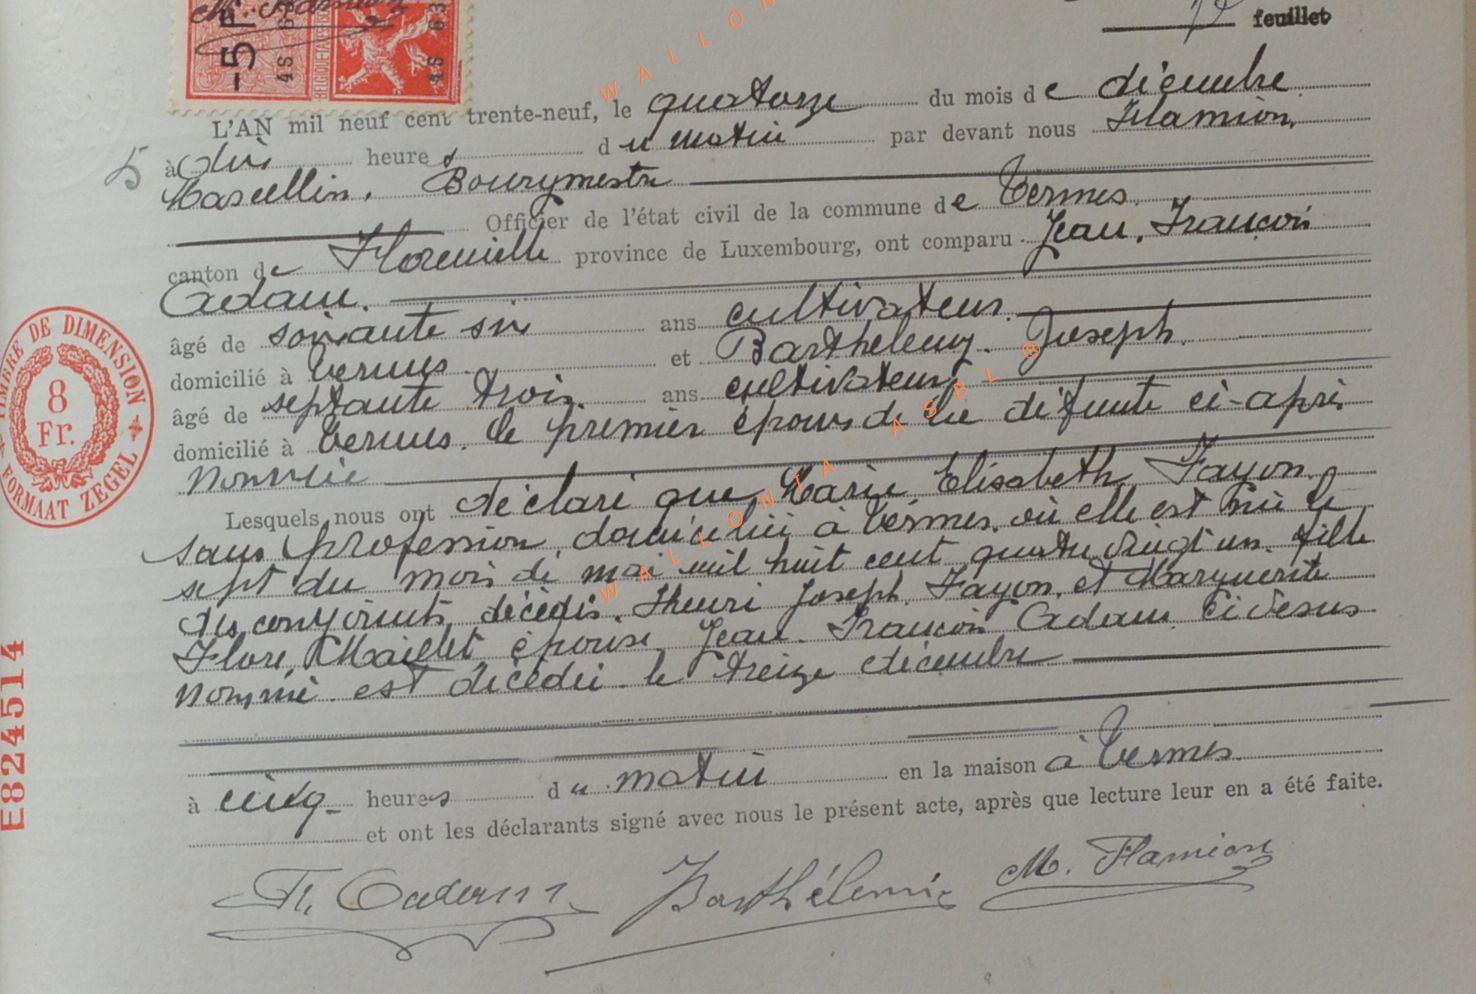 M. Flamion
-5 F
feuillet
L'AN mil neuf cent trente-neuf, le quatorze du mois de décembre
5
à dix heures du matin par devant nous Flamion,
Marcellin. Bourgmestre
Officier de l'état civil de la commune de Termes.
canton de Florenville province de Luxembourg, ont comparu Jean, François
Adam.
âgé de soixante six ans cultivateur.
domicilié à Termes et Barthélemy. Joseph.
âgé de septante trois ans cultivateur
domicilié à Termes. le premier époux de la défunte ci-après
nommée
Lesquels nous ont déclaré que Marie Elisabeth Fayon.
sans profession, domiciliée à Termes. où elle est née le
sept du mois de mai mil huit cent quatre vingt un. fille
des conjoints décédés. Henri Joseph. Fayon. et Marguerite
Flore, Maillet épouse Jean. François Adam ci desus
nommé est décédée le treize décembre
à cinq heures du matin en la maison à Termes
et ont les déclarants signé avec nous le présent acte, après que lecture leur en a été faite.
Fr. Adam Barthélemi M. Flamion
TIMBRE DE DIMENSION
8
Fr.
FORMAAT ZEGEL
E824514
WALLONIA ASBL